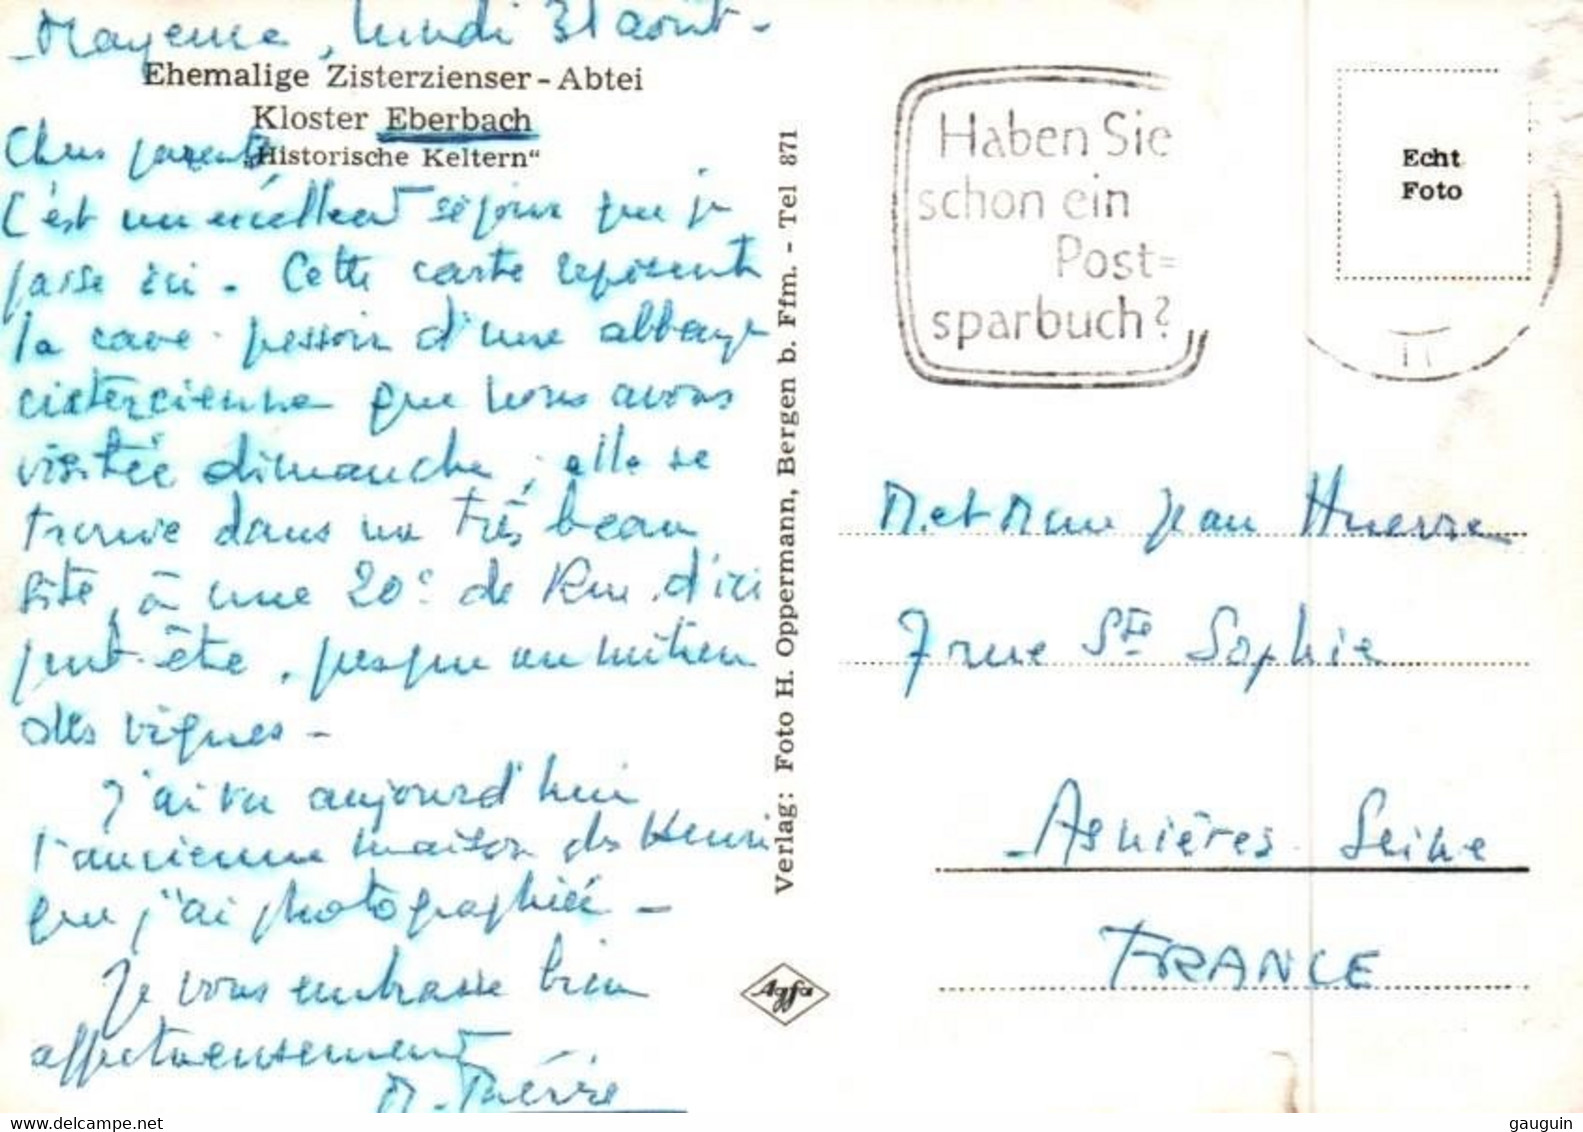 - Mayence, lundi 31 août -
Ehemalige Zisterzienser-Abtei
Kloster Eberbach
„Historische Keltern“
Chers parents
C'est un excellent séjour que je
passe ici. Cette carte représente
la cave-pressoir d'une abbaye
cistercienne que nous avons
visitée dimanche, elle se
trouve dans un très beau
site, à une 20e de Km. d'ici
peut-être, presque au milieu
des vignes -
J'ai vu aujourd'hui
l'ancienne maison de Henri
que j'ai photographiée -
Je vous embrasse bien
affectueusement
M. Pierre
Verlag: Foto H. Oppermann, Bergen b. Ffm. - Tel 871
Agfa
Haben Sie
schon ein
Post=
sparbuch?
Echt
Foto
M. et Mme Jean Huerre
7 rue Ste Sophie
- Asnières. Seine
FRANCE
delcampe.net
gauguin